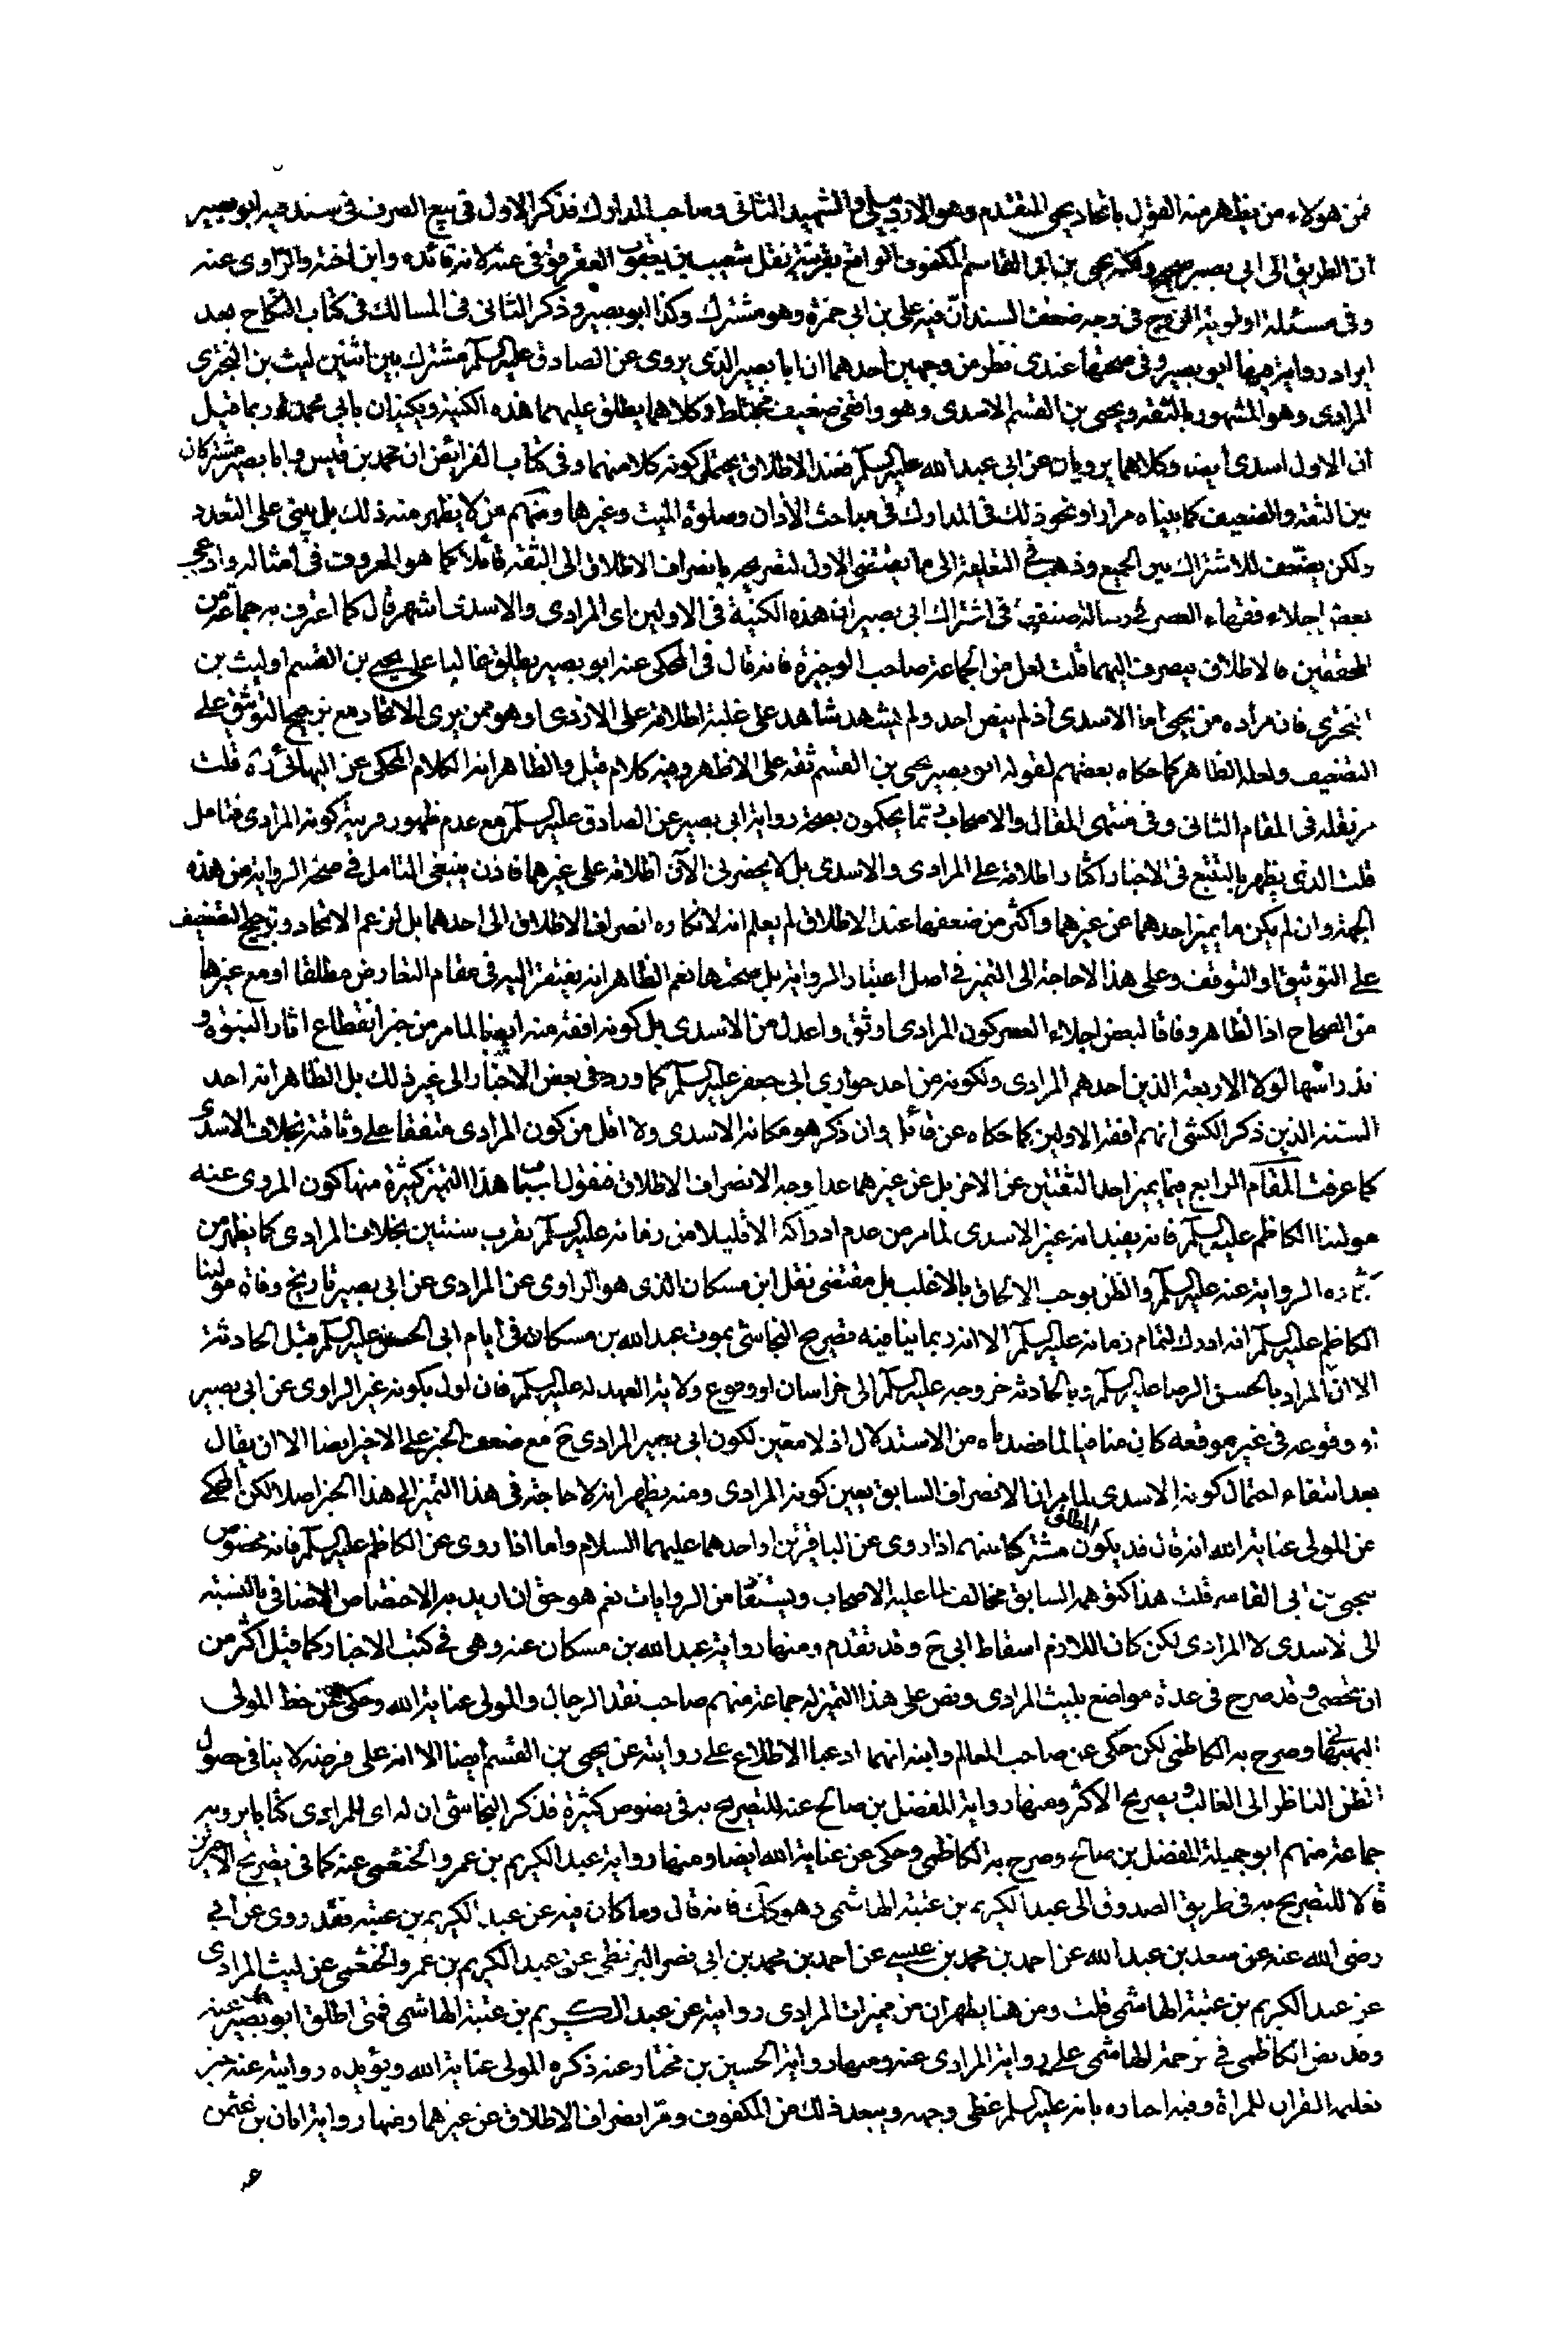 فمن هولاء من يظهر منه القول باتحاد يحيى المتقدم وهو الاردبيلي والشهيد الثاني وصاحب المدارك فذكر الاول في بيع الصرف في سند فيه ابو بصير
ان الطريق الى ابي بصير صحيح ولكنه يحيى بن ابي القاسم المكفوف الواقع بقرينة نقل شعيب بن يعقوب العقرقوفي عنه لانه قائده وابن اخته والراوى عنه
وفي مسئلة اولوية الزوج في وجه ضعف السند ان فيه على بن ابي حمزة وهو مشترك وكذا ابو بصير وذكر الثاني في المسالك في كتاب النكاح بعد
ايراد رواية فيها ابو بصير وفي صحتها عندى نظر من وجهين احدهما ان ابا بصير الذى يروى عن الصادق عليه السلم مشترك بين اثنين ليث بن البخترى
المرادى وهو المشهور بالثقة ويحيى بن القسم الاسدى وهو واقفى ضعيف مختلط وكلاهما يطلق عليهما هذه الكنية ويكنيان بابي محمد وربما قيل
ان الاول اسدى ايضا وكلاهما يرويان عن ابي عبد الله عليه السلم فعند الاطلاق يحتمل كونه كلا منهما وفي كتاب الفرايض ان محمد بن قيس وابا بصير مشتركان
بين الثقة والضعيف كما بيناه مرارا ونحو ذلك في المدارك في مباحث الاذان وصلوة الميت وغيرها ومنهم من لا يظهر منه ذلك بل يبنى على التعدد
ولكن يضعف للاشتراك بين الجميع وذهب في التعليقة الى ما يقتضى الاول لتصريحه بانصراف الاطلاق الى الثقة قائلا كما هو المعروف في امثاله وادعى
بعض اجلاء فقهاء العصر في رسالة صنفها في اشتراك ابي بصير ان هذه الكنية في الاولين اى المرادى والاسدى اشهر قال كما اعترف به جماعة من
المحققين فالاطلاق ينصرف اليهما قلت لعل من الجماعة صاحب الوجيزة فانه قال في المحكى عنه ابو بصير يطلق غالبا على يحيى بن القسم او ليث بن
البخترى فان مراده من يحيى اما الاسدى اذ لم ينص احد ولم يشهد شاهد على غلبة اطلاقه على الازدى او هو ممن يرى الاتحاد مع ترجيح التوثيق على
التضعيف ولعله الظاهر كما حكاه بعضهم لقوله ابو بصير يحيى بن القسم ثقة على الاظهر وفيه كلام قيل والظاهر انه الكلام المحكى عن البهائى ره قلت
مر نقله في المقام الثاني وفي منتهى المقال والاصحاب ربما يحكمون بصحة رواية ابي بصير عن الصادق عليه السلم مع عدم ظهور قرينة كونه المرادى فتامل
قلت الذى يظهر بالتتبع في الاخبار اكثار اطلاقه على المرادى والاسدى بل لا يحضرنى الآن اطلاقه على غيرهما فاذن ينبغى التامل في صحة الرواية من هذه
الجهة وان لم يكن ما يميز احدهما عن غيرهما واكثر من ضعفها عند الاطلاق لم يعلم انه لانكاره انصراف الاطلاق الى احدهما بل لزعم الاتحاد وترجيح التضعيف
على التوثيق او التوقف وعلى هذا لا حاجة الى التميز في اصل اعتبار الرواية بل صحتها نعم الظاهر انه يفتقر اليه في مقام التعارض مطلقا او مع غيرها
من الصحاح اذ الظاهر وفاقا لبعض اجلاء العصر كون المرادى اوثق واعدل من الاسدى بل كونه افقه منه ايضا لما مر من خبر انقطاع اثار النبوة و
اندراسها لولا الاربعة الذين احدهم المرادى ولكونه من احد حواري ابي جعفر عليه السلم كما ورد في بعض الاخبار الى غير ذلك بل الظاهر انه احد
الستة الذين ذكر الكشى انهم افقه الاولين كما حكاه عن قائل وان ذكر هو مكانه الاسدى ولا اقل من كون المرادى متفقا على وثاقته بخلاف الاسدى
كما عرفت المقام الرابع فيما يميز احد الثقتين عن الاخر بل عن غيرهما عدا وجه الانصراف الاطلاق فنقول اسباب هذا التميز كثيرة منها كون المروى عنه
مولينا الكاظم عليه السلم فانه يفيد انه غير الاسدى لما مر من عدم ادراكه الا قليلا من زمانه عليه السلم بقرب سنتين بخلاف المرادى كما يظهر من
كثرة الرواية عنه عليه السلم والظن يوجب الالحاق بالاغلب بل مقتضى نقل ابن مسكان الذى هو الراوى عن المرادى عن ابي بصير تاريخ وفاة مولينا
الكاظم عليه السلم انه ادرك لتمام زمانه عليه السلم الا انه ربما ينافيه تصريح النجاشى بموت عبد الله بن مسكان في ايام ابي الحسن عليه السلم قبل الحادثة
الا ان المراد بالحسن الرضا عليه السلم وبالحادثة خروجه عليه السلم الى خراسان او وقوع ولاية العهد له عليه السلم فان اول بكونه غير الراوى عن ابي بصير
او وقوعه في غير موقعه كان منافيا لما قصدناه من الاستدلال اذ لا معين لكون ابي بصير المرادى ح مع ضعف الخبر على الاخير ايضا الا ان يقال
بعد انتفاء احتمال كونه الاسدى لما مر ان الانصراف السابق يعين كونه المرادى ومنه يظهر انه لا حاجة في هذا التميز الى هذا الخبر اصلا لكن المحكى
عن المولى عناية الله انه قال قد يكون المطلق مشتركا منهم اذا روى عن الباقرين او احدهما عليهما السلام واما اذا روى عن الكاظم عليه السلم فانه مخصوص
بيحيى بن ابي القاسم قلت هذا كتوهمه السابق مخالف لما عليه الاصحاب ويستفاد من الروايات نعم هو حق ان اريد به الاختصاص الاضافى بالنسبة
الى الاسدى لا المرادى لكن كان اللازم اسقاط ابي ح وقد تقدم ومنها رواية عبد الله بن مسكان عنه وهى في كتب الاخبار كما قيل اكثر من
ان تحصى وقد صرح في عدة مواضع بليث المرادى ونص على هذا التميز له جماعة منهم صاحب نقد الرجال والمولى عناية الله وحكى عن خط المولى
البهبهانى وصرح به الكاظمى لكن حكى عن صاحب المعالم وابنه انهما ادعيا الاطلاع على روايته عن يحيى بن القسم ايضا الا انه على فرضه لا ينافى حصول
الظن الناظر الى الغالب وبصريح الاكثر ومنها رواية المفضل بن صالح عنه للتصريح به في نصوص كثيرة فذكر النجاشى ان له اى للمرادى كتابا يرويه
جماعة منهم ابو جميلة المفضل بن صالح وصرح به الكاظمى وحكى عن عناية الله ايضا ومنها رواية عبد الكريم بن عمرو الخثعمى عنه كما في تصريح الاخيرين
قالا للتصريح به في طريق الصدوق الى عبد الكريم بن عتبة الهاشمى وهو كك فانه قال وما كان فيه عن عبد الكريم بن عتبة فقد روى عن ابي
رضى الله عنه عن سعد بن عبد الله عن احمد بن محمد بن عيسى عن احمد بن محمد بن ابي نصر البزنطى عن عبد الكريم بن عمرو الخثعمى عن ليث المرادى
عن عبد الكريم بن عتبة الهاشمى قلت ومن هنا يظهر ان من مميزات المرادى روايته عن عبد الكريم بن عتبة الهاشمى فمتى اطلق ابو بصير عنه
وقد نص الكاظمى في ترجمة الهاشمى على رواية المرادى عنه ومنها رواية الحسين بن مختار عنه ذكره المولى عناية الله ويؤيده روايته عنه خبر
تعليمه القران للمراة وفيه اخباره بانه عليه السلم غطى وجهه ويبعد ذلك من المكفوف ومر انصراف الاطلاق عن غيرهما ومنها رواية ابان بن عثمن